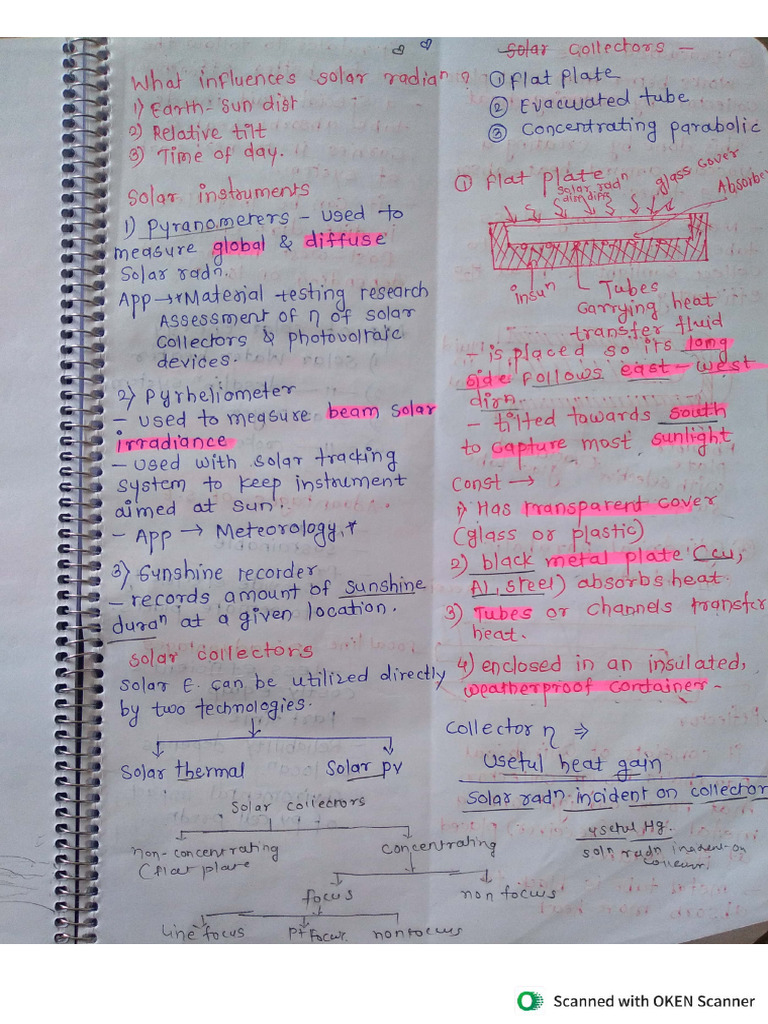 What influences solar radian ?
1) Earth-Sun dist
2) Relative tilt
3) Time of day.
Solar instruments
1) Pyranometers - used to
measure global & diffuse
Solar radn.
App → * Material testing research
Assessment of η of solar
collectors & photovoltaic
devices.
2) Pyrheliometer
- used to measure beam solar
irradiance
- used with solar tracking
system to keep instrument
aimed at sun.
- App → Meteorology, *
3) Sunshine recorder
- records amount of sunshine
duran at a given location.
Solar collectors
Solar E. can be utilized directly
by two technologies.
Solar thermal
Solar PV
Solar collectors
non-concentrating
(flat plate
concentrating
focus
non focus
Line focus
pt focus
non focus
Solar Collectors -
① Flat plate
② Evacuated tube
③ Concentrating parabolic
① Flat plate
solar radn
glass cover
Absorber
insun
Tubes
carrying heat
transfer fluid
- is placed so its long
side follows east-west
dirn.
- tilted towards south
to capture most sunlight
Const →
1) Has transparent cover
(glass or plastic)
2) black metal plate (Cu,
Al, steel) absorbs heat.
3) Tubes or channels transfer
heat.
4) enclosed in an insulated,
weatherproof container -
Collector η ⇒
Useful heat gain
Solar radn incident on collector
Useful Hg.
soln radn incident on